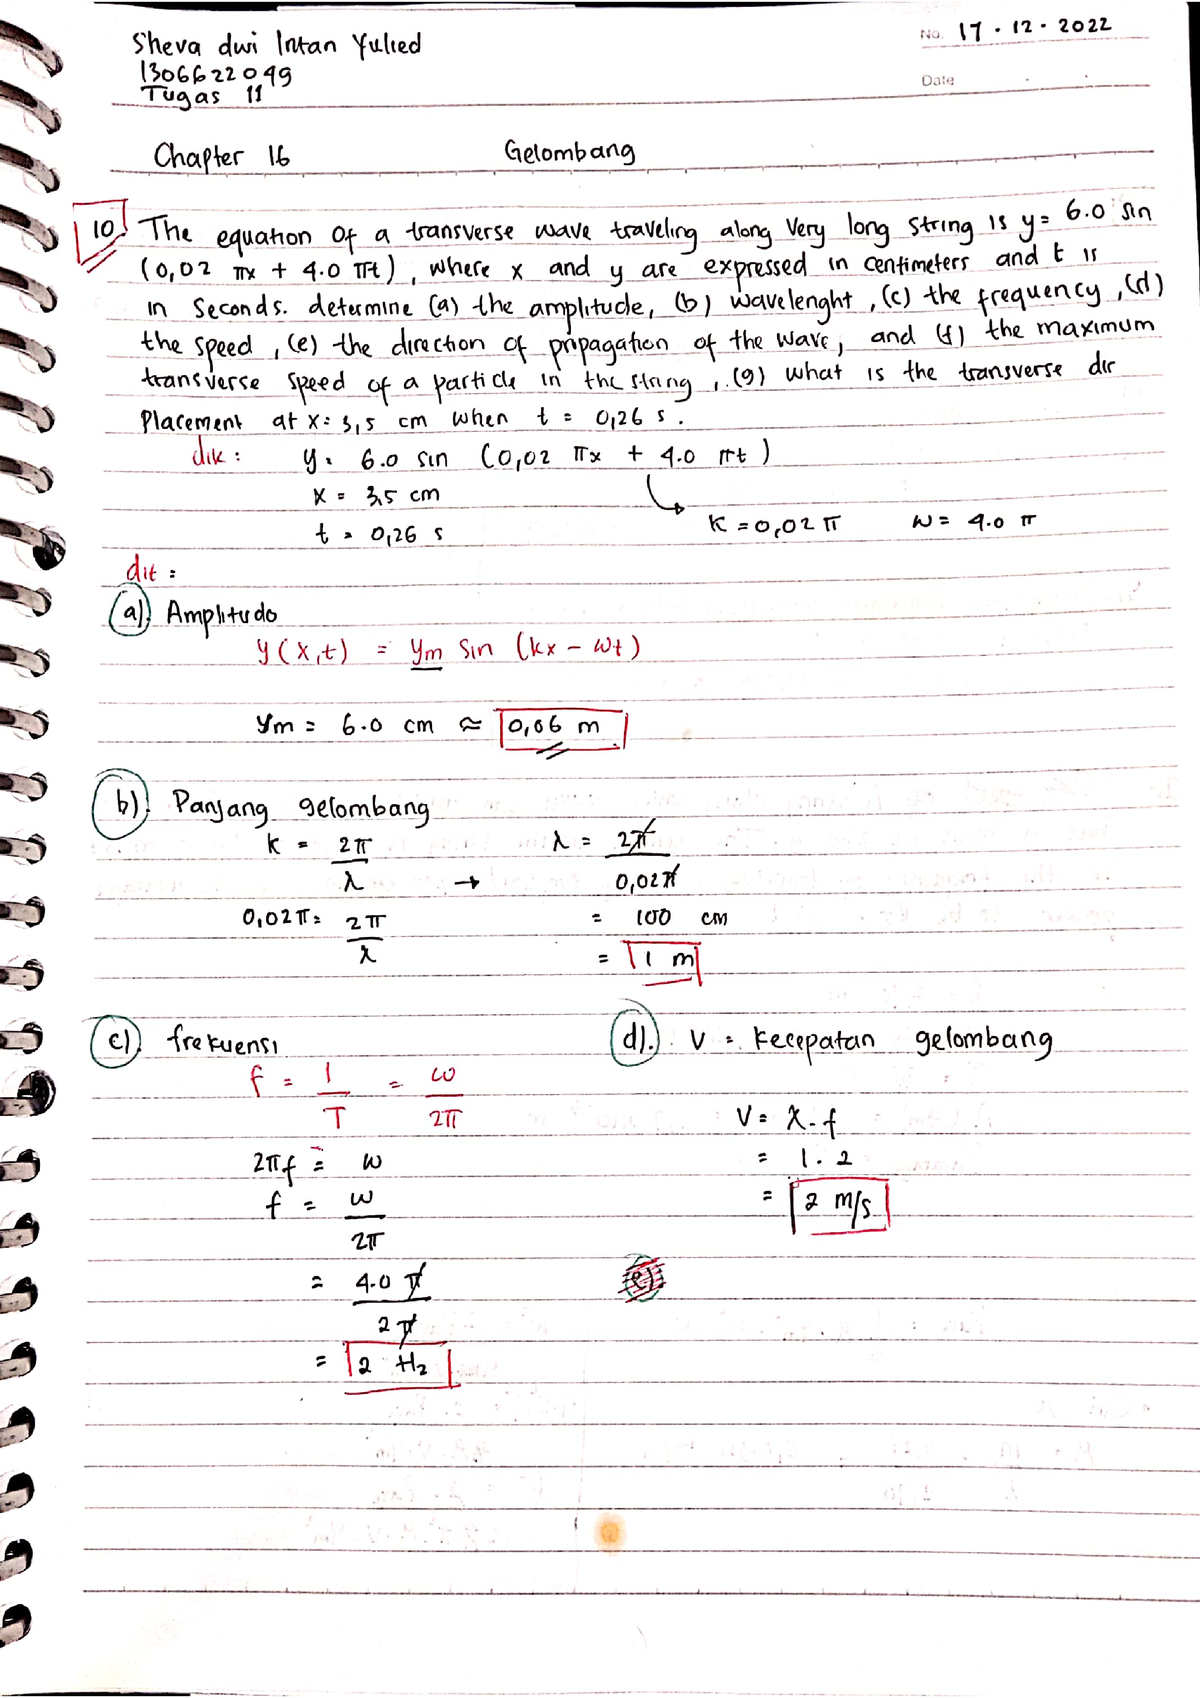 Sheva dwi Intan Yulied
No. 17 · 12 · 2022
1306622049
Tugas 11
Date
Chapter 16 Gelombang
10) The equation of a transverse wave traveling along very long string is y = 6.0 sin
(0,02 πx + 4.0 πt), where x and y are expressed in centimeters and t is
in seconds. determine (a) the amplitude, (b) wavelenght, (c) the frequency, (d)
the speed, (e) the direction of propagation of the wave, and (f) the maximum
transverse speed of a particle in the string, (g) what is the transverse dir
placement at x = 3,5 cm when t = 0,26 s.
dik : y = 6.0 sin (0,02 πx + 4.0 πt)
x = 3,5 cm
K = 0,02 π W = 4.0 π
t = 0,26 s
dit :
a). Amplitudo
y(x,t) = ym sin (kx - wt)
ym = 6.0 cm ≈ 0,06 m
b). Panjang gelombang
k = 2π/λ → λ = 2π/0,02π
0,02π = 2π/λ = 100 cm
= 1 m
c). frekuensi
f = 1/T = ω/2π
2πf = ω
f = ω/2π
= 4.0 π/2π
= 2 Hz
d). V = kecepatan gelombang
V = λ . f
= 1 . 2
= 2 m/s
e).